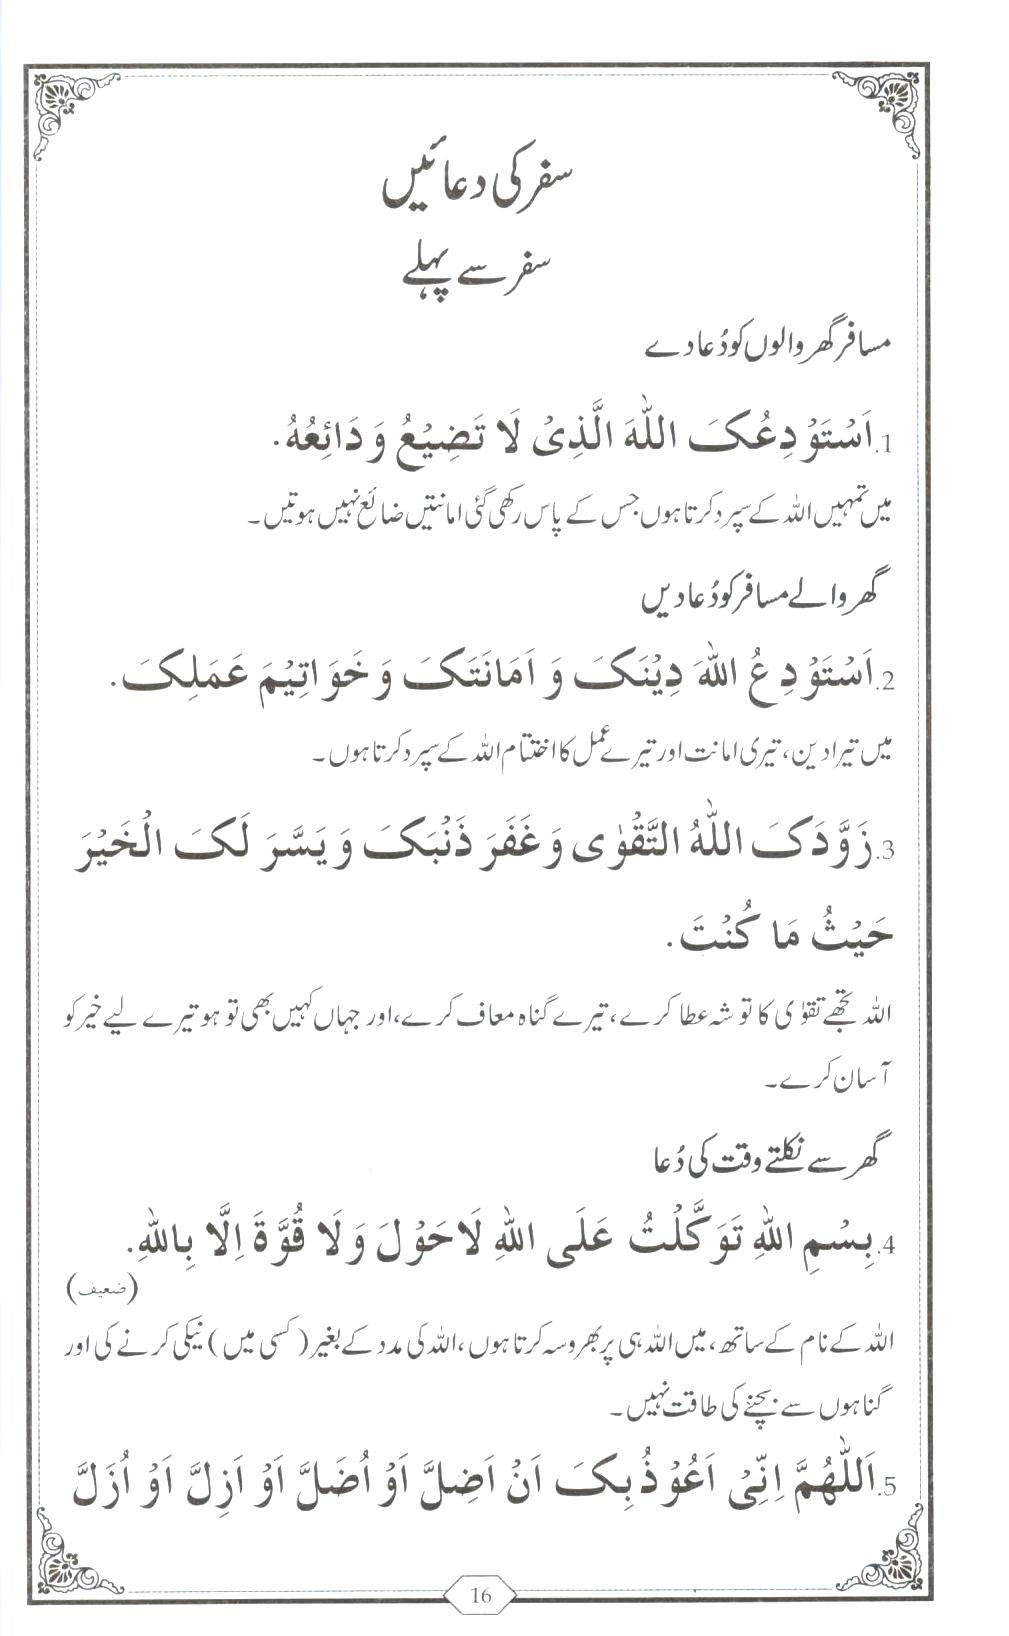 سفر کی دعائیں
سفر سے پہلے
مسافر گھر والوں کو دُعا دے
1. اَسْتَوْدِعُکَ اللّٰهَ الَّذِیْ لَا تَضِیْعُ وَدَائِعُهُ.
میں تمہیں اللہ کے سپرد کرتا ہوں جس کے پاس رکھی گئی امانتیں ضائع نہیں ہوتیں۔
گھر والے مسافر کو دُعا دیں
2. اَسْتَوْدِعُ اللّٰهَ دِیْنَکَ وَ اَمَانَتَکَ وَ خَوَاتِیْمَ عَمَلِکَ.
میں تیرا دین، تیری امانت اور تیرے عمل کا اختتام اللہ کے سپرد کرتا ہوں۔
3. زَوَّدَکَ اللّٰهُ التَّقْوٰی وَ غَفَرَ ذَنْبَکَ وَ یَسَّرَ لَکَ الْخَیْرَ
حَیْثُ مَا کُنْتَ.
اللہ تجھے تقوٰی کا توشہ عطا کرے، تیرے گناہ معاف کرے، اور جہاں کہیں بھی تو ہو تیرے لیے خیر کو
آسان کرے۔
گھر سے نکلتے وقت کی دُعا
4. بِسْمِ اللّٰهِ تَوَکَّلْتُ عَلَی اللّٰهِ لَا حَوْلَ وَلَا قُوَّةَ اِلَّا بِاللّٰهِ.
(ضعیف)
اللہ کے نام کے ساتھ، میں اللہ ہی پر بھروسہ کرتا ہوں، اللہ کی مدد کے بغیر (کسی میں) نیکی کرنے کی اور
گناہوں سے بچنے کی طاقت نہیں۔
5. اَللّٰهُمَّ اِنِّیْ اَعُوْذُ بِکَ اَنْ اَضِلَّ اَوْ اُضَلَّ اَوْ اَزِلَّ اَوْ اُزَلَّ
16